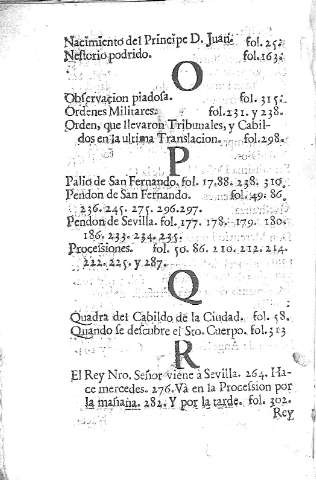 Nacimiento del Principe D. Juan. fol. 25.
Nestorio podrido. fol. 163.
O
Observacion piadosa. fol. 315.
Ordenes Militares. fol. 231. y 238.
Orden, que llevaron Tribunales, y Cabil-
dos en la ultima Translacion. fol. 298.
P
Palio de San Fernando. fol. 17. 88. 238. 310.
Pendon de San Fernando. fol. 49. 86.
236. 245. 275. 296. 297.
Pendon de Sevilla. fol. 177. 178. 179. 180.
186. 233. 234. 235.
Processiones. fol. 50. 86. 210. 212. 214.
222. 225. y 287.
Q
Quadra del Cabildo de la Ciudad. fol. 58.
Quando se descubre el Sto. Cuerpo. fol. 313
R
El Rey Nro. Señor viene à Sevilla. 264. Ha-
ce mercedes. 276. Và en la Procession por
la mañana. 282. Y por la tarde. fol. 302.
Rey